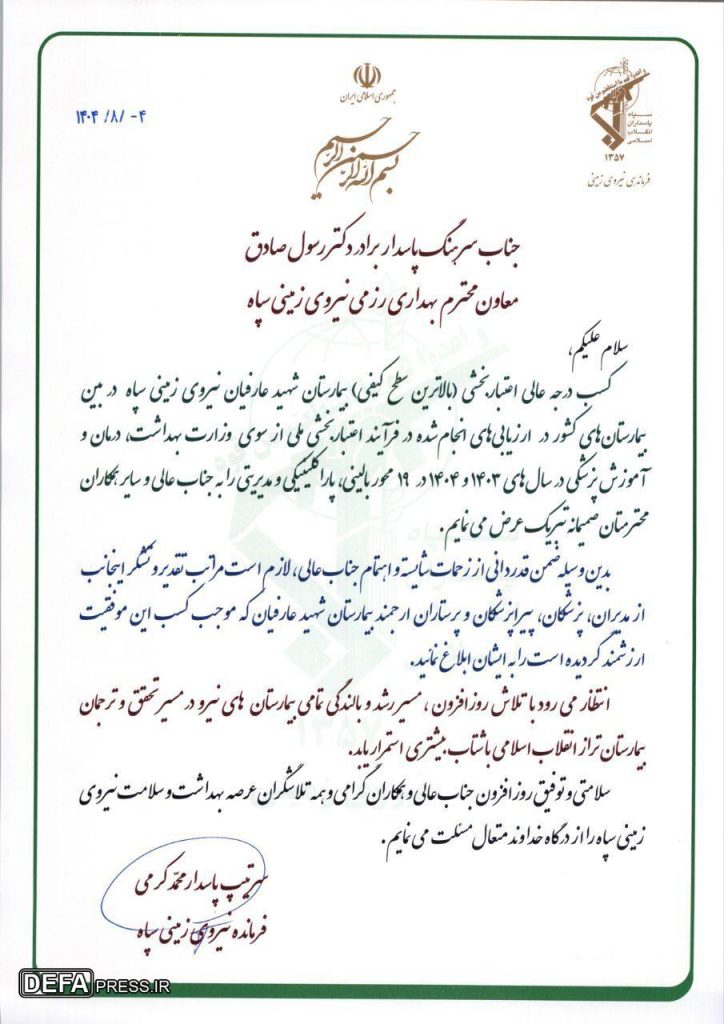 جمهوری اسلامی ایران
و اعدوا لهم ما استطعتم من قوة
سپاه
پاسداران
انقلاب
اسلامی
۱۳۵۷
فرماندهی نیروی زمینی
۱۴۰۴ /۸/ -۴
بسم الله الرحمن الرحیم
جناب سرهنگ پاسدار برادر دکتر رسول صادق
معاون محترم بهداری رزمی نیروی زمینی سپاه
سلام علیکم،
کسب درجه عالی اعتباربخشی (بالاترین سطح کیفی) بیمارستان شهید عارفیان نیروی زمینی سپاه در بین
بیمارستان‌های کشور در ارزیابی‌های انجام شده در فرآیند اعتباربخشی ملی از سوی وزارت بهداشت، درمان و
آموزش پزشکی در سال‌های ۱۴۰۳ و ۱۴۰۴ در ۱۹ محور بالینی، پاراکلینیکی و مدیریتی را به جناب عالی و سایر همکاران
محترمتان صمیمانه تبریک عرض می نمایم.
بدین وسیله ضمن قدردانی از زحمات شایسته و اهتمام جناب عالی، لازم است مراتب تقدیر و تشکر اینجانب
از مدیران، پزشکان، پیراپزشکان و پرستاران ارجمند بیمارستان شهید عارفیان که موجب کسب این موفقیت
ارزشمند گردیده است را به ایشان ابلاغ نمائید.
انتظار می رود با تلاش روز افزون، مسیر رشد و بالندگی تمامی بیمارستان های نیرو در مسیر تحقق و ترجمان
بیمارستان تراز انقلاب اسلامی با شتاب بیشتری استمرار یابد.
سلامتی و توفیق روز افزون جناب عالی و همکاران گرامی و همه تلاشگران عرصه بهداشت و سلامت نیروی
زمینی سپاه را از درگاه خداوند متعال مسئلت می نمایم.
سرتیپ پاسدار محمد کرمی
فرمانده نیروی زمینی سپاه
DEFAPRESS.IR